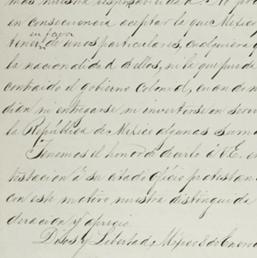 mas nuestra responsabilidad. No pode
en consecuencia aceptar la que Mexico
en favor
tener de unos particulares, cualquiera q
la nacionalidad de ellos, ni la que puede
contraido el gobierno Colonial, cuando
dian ni entregarse ni invertirse en serv
la República de Mexico algunas sumas
Tenemos el honor de decirlo á V.E. en
testacion á su citado oficio protestan
con este motivo nuestra distinguida
deracion y aprecio.
Dios y Libertad. México 8 de Enero